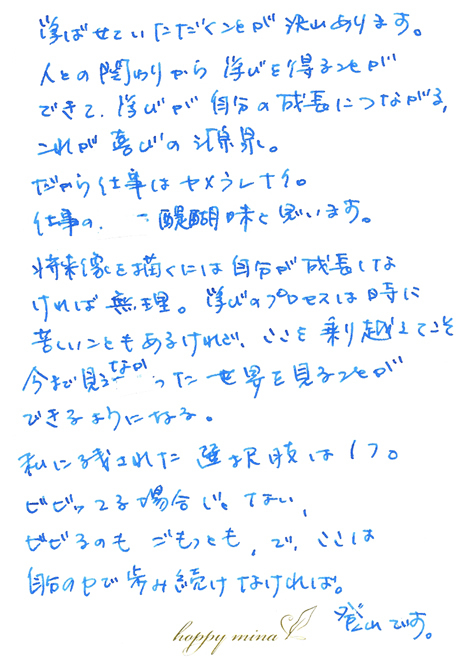 学ばせていただくことが沢山あります。
人との関わりから学びを得ることが
できて、学びが自分の成長につながる、
これが喜びの源泉。
だから仕事はヤメラレナイ。
仕事の、一醍醐味と思います。
将来像を描くには自分が成長しな
ければ無理。学びのプロセスは時に
苦しいこともあるけれど、ここを乗り越えてこそ
今まで見えなかった世界を見ることが
できるようになる。
私に残された選択肢は1つ。
ビビッてる場合じゃない、
ビビるのもごもっとも、で、ここは
自分の中で歩み続けなければ。
登山です。
happy mina